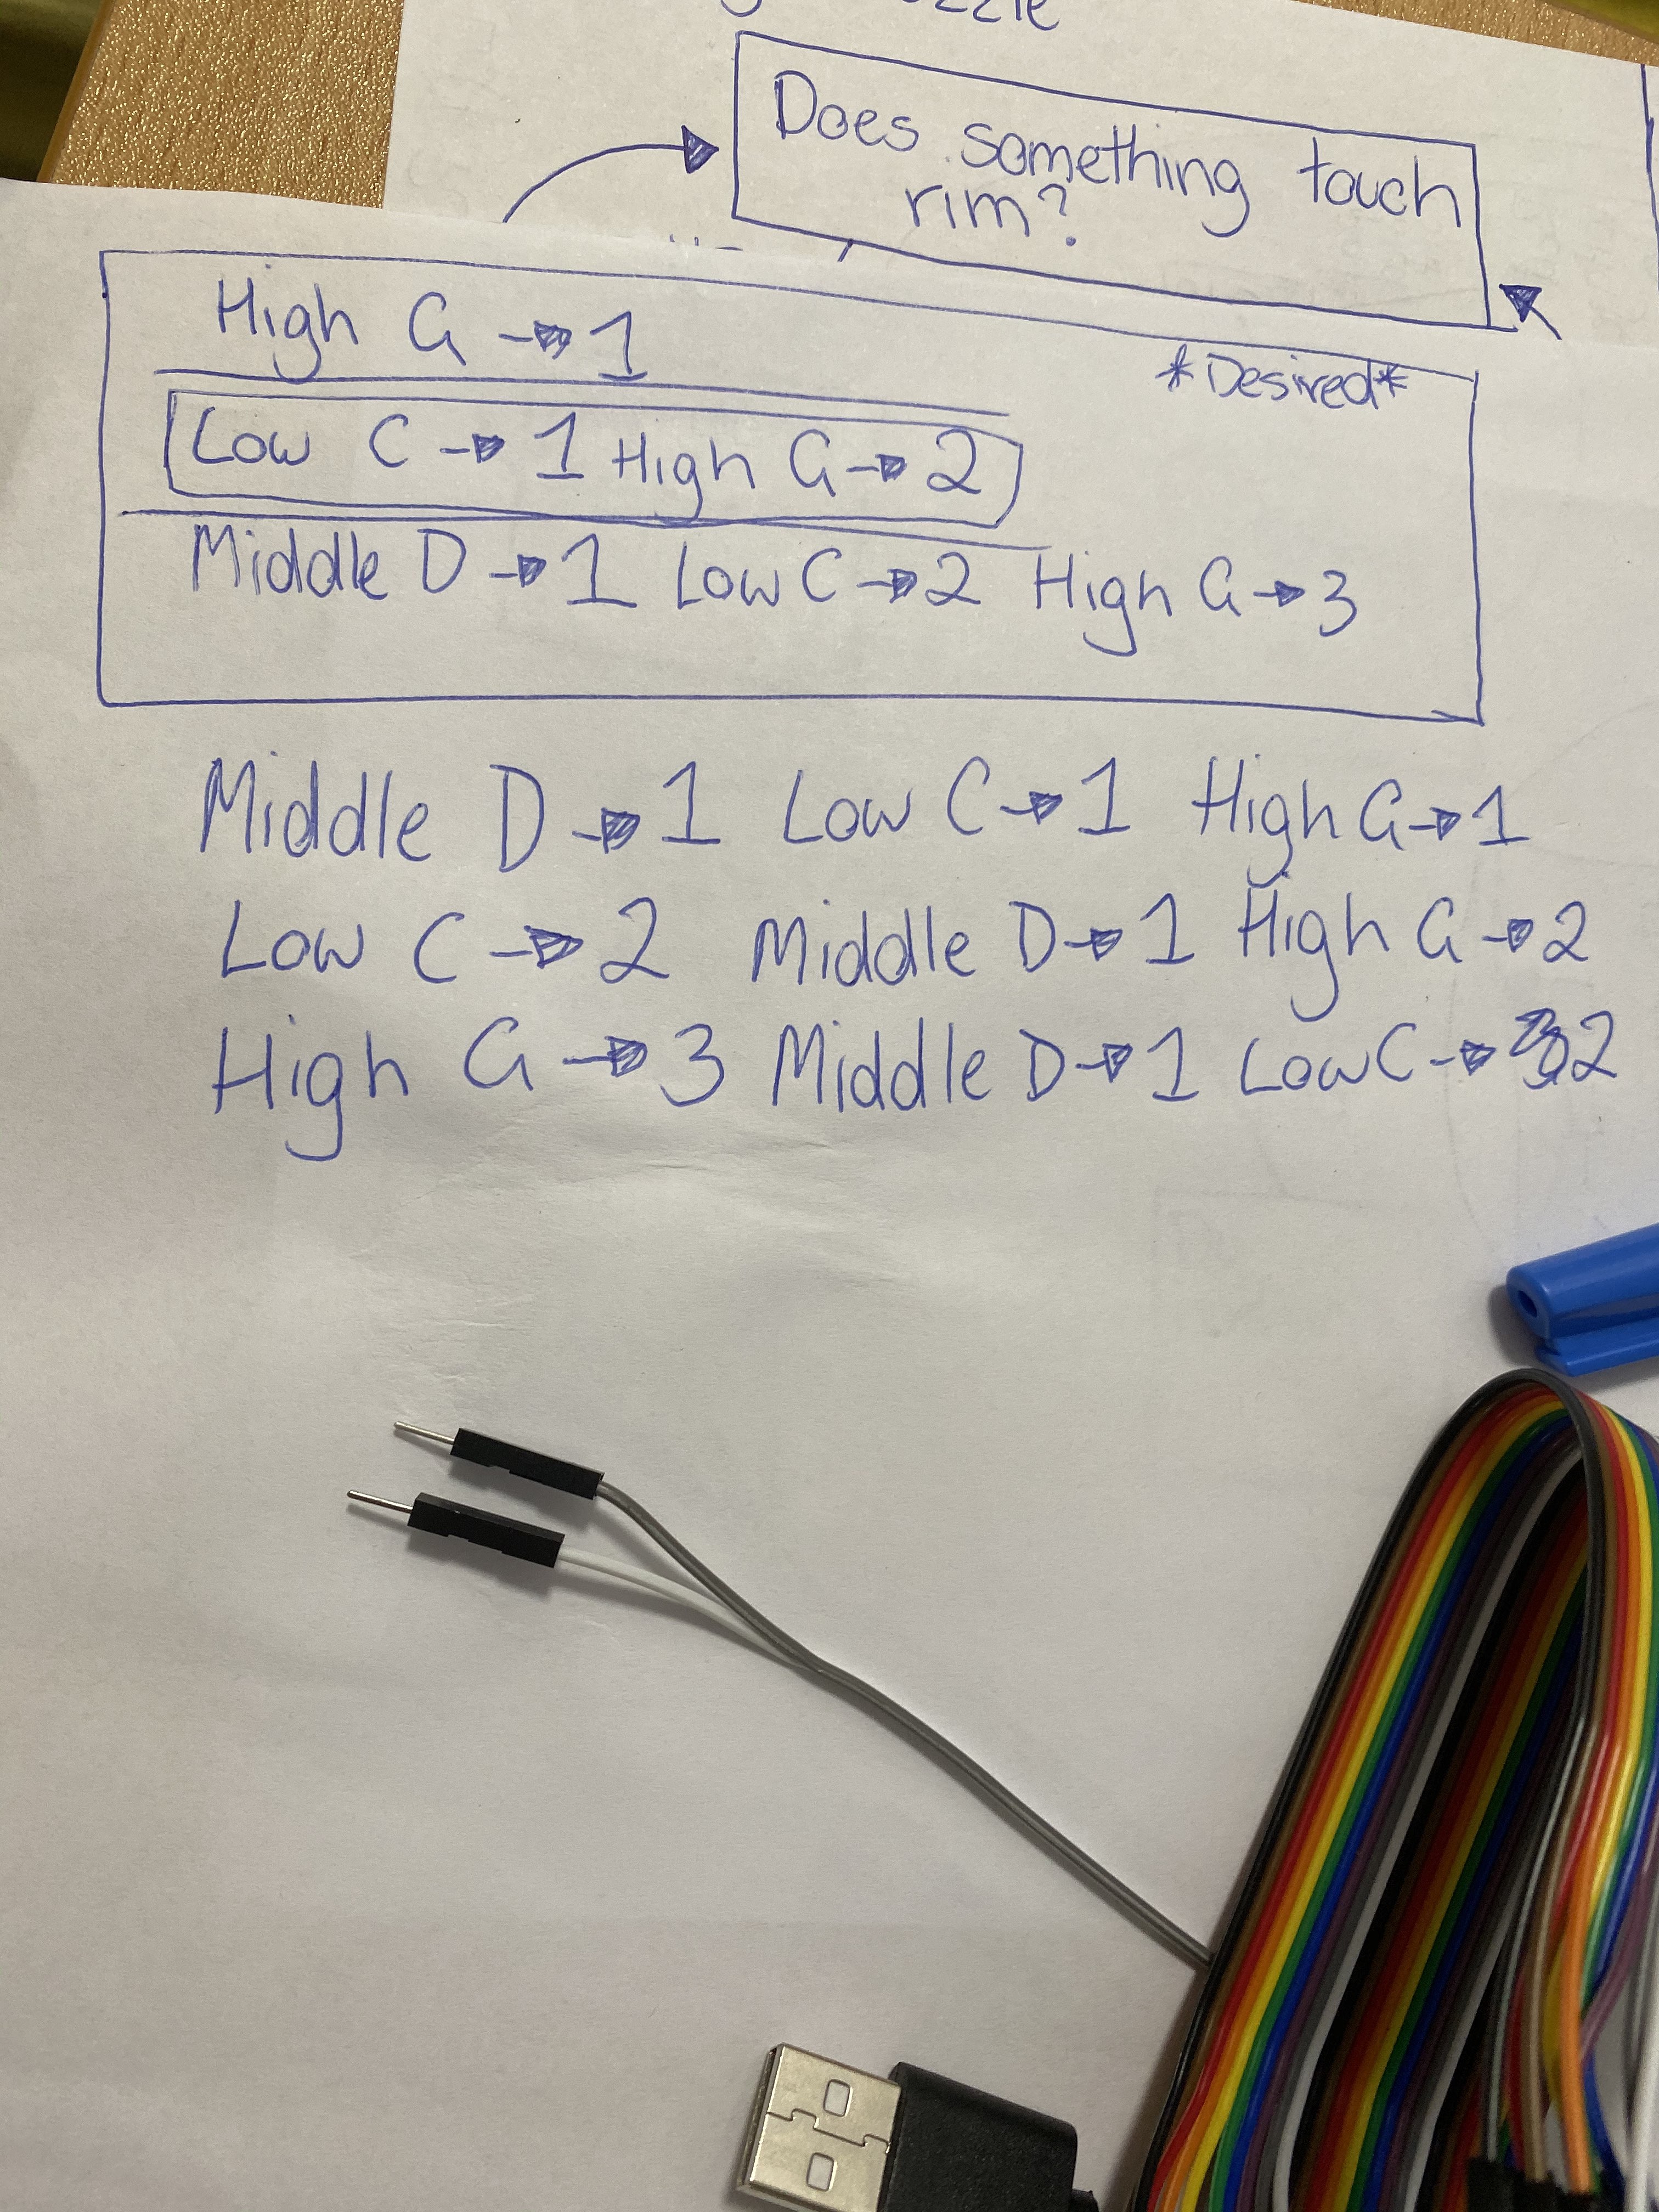 Does something touch
rim?
High G → 1
*Desired*
Low C → 1 High G → 2
Middle D → 1 Low C → 2 High G → 3
Middle D → 1 Low C → 1 High G → 1
Low C → 2 Middle D → 1 High G → 2
High G → 3 Middle D → 1 Low C → 2